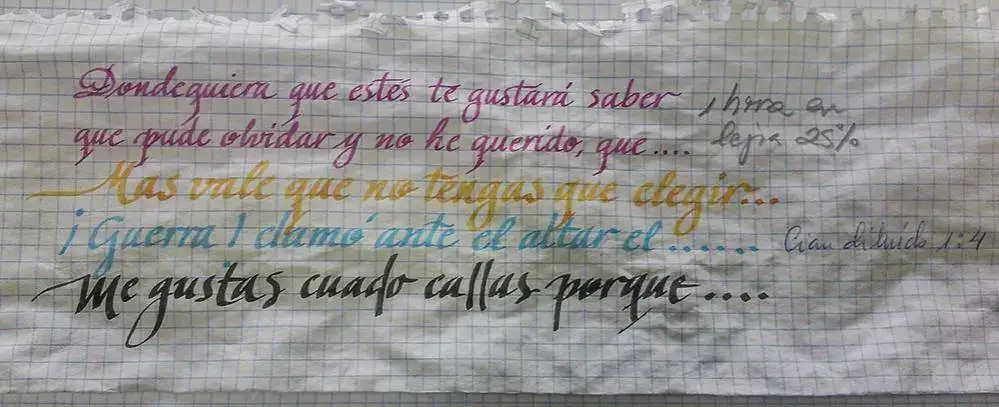 Dondequiera que estés te gustará saber
que pude olvidar y no he querido, que....
1 hora en
lejia 25%
Mas vale que no tengas que elegir...
¡Guerra! clamó ante el altar el.......
Cian diluido 1:4
Me gustas cuado callas porque....